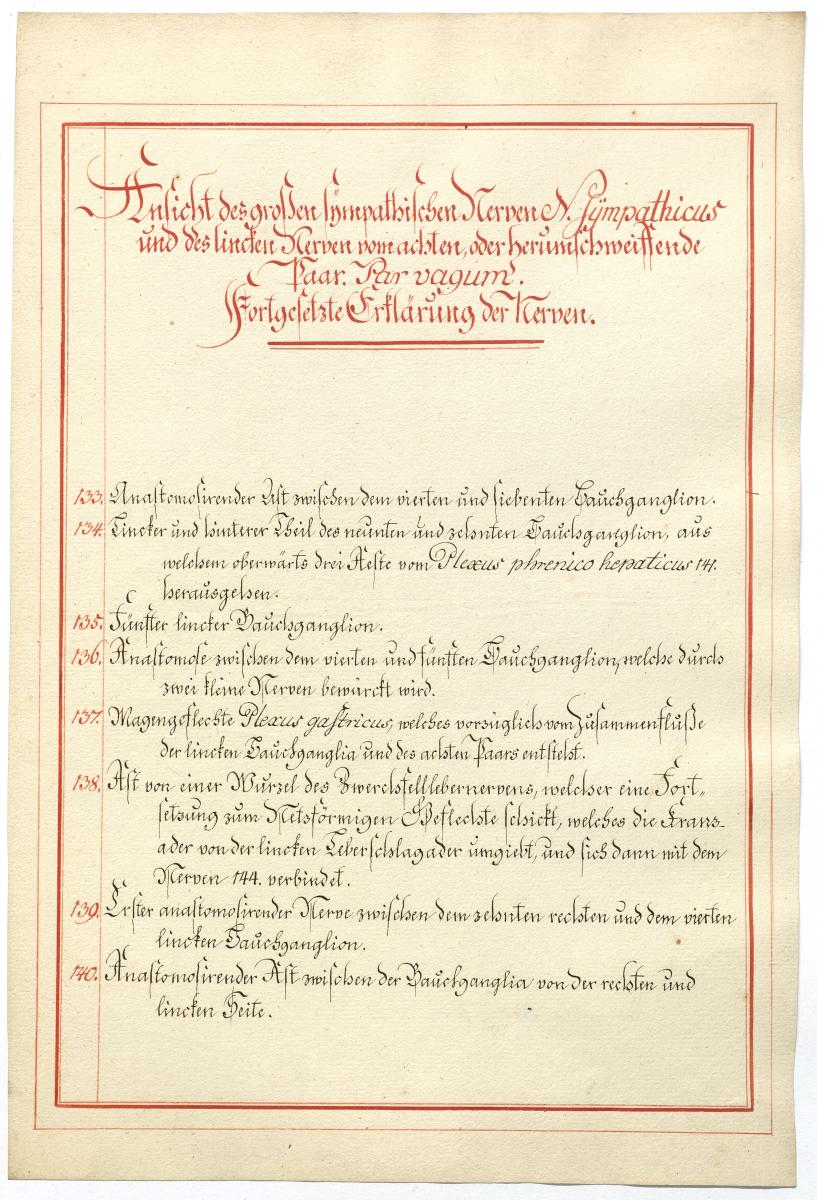 Ansicht des großen sÿmpathischen Nerven N. Sÿmpathicus
und des lincken Nerven vom achten, oder herumschweiffende
Paar. Par vagum.
Fortgesetzte Erklärung der Nerven.
133. Anastomosirender Ast zwischen dem vierten und siebenten Bauchganglion.
134. Lincker und hinterer Theil des neunten und zehnten Bauchganglion, aus
welchem oberwärts drei Aeste vom Plexus phrenico hepaticus 141.
herausgehen.
135. Fünfter lincker Bauchganglion.
136. Anastomose zwischen dem vierten und fünften Bauchganglion, welche durch
zwei kleine Nerven bewürckt wird.
137. Magengeflechte Plexus gastricus, welches vorzüglich vom Zusammenfluße
der lincken Bauchganglia und des achten Paars entsteht.
138. Ast von einer Wurzel des Zwerchfelllebernervens, welcher eine Fort-
setzung zum Netzförmigen Geflechte schickt, welches die Kranz-
ader von der lincken Leberschlagader umgiebt, und sich dann mit dem
Nerven 144. verbindet.
139. Erster anastomosirender Nerve zwischen dem zehnten rechten und dem vierten
lincken Bauchganglion.
140. Anastomosirender Ast zwischen der Bauchganglia von der rechten und
lincken Seite.